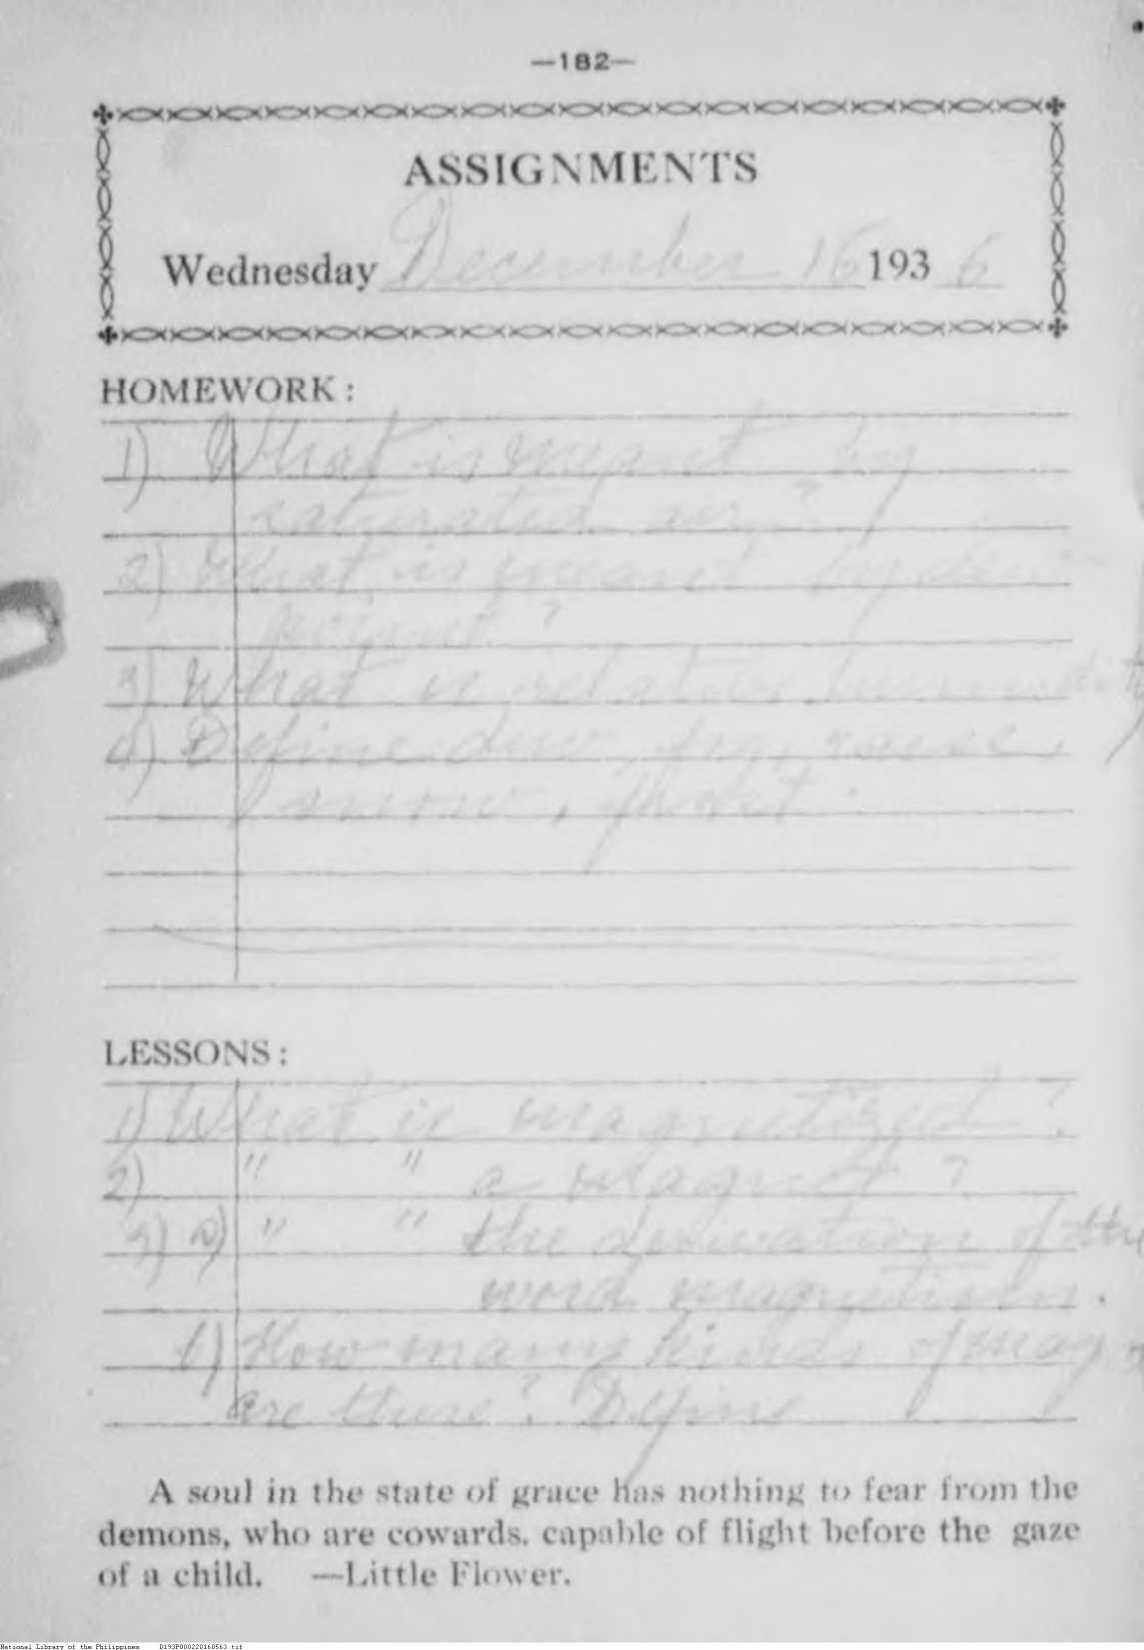 —182—
ASSIGNMENTS
Wednesday December 16 1936
HOMEWORK:
1) What is meant by
saturated air?
2) What is meant by dew
point?
3) What is relative humidity
4) Define dew, fog, 
snow, frost.
LESSONS:
1) What is magnetized?
2) " " a magnet?
3) a) " " the derivation of the
word magnetism.
b) How many kinds of mag
are there? Define
A soul in the state of grace has nothing to fear from the
demons, who are cowards, capable of flight before the gaze
of a child. —Little Flower.
National Library of the Philippines D193P000220160563.tif